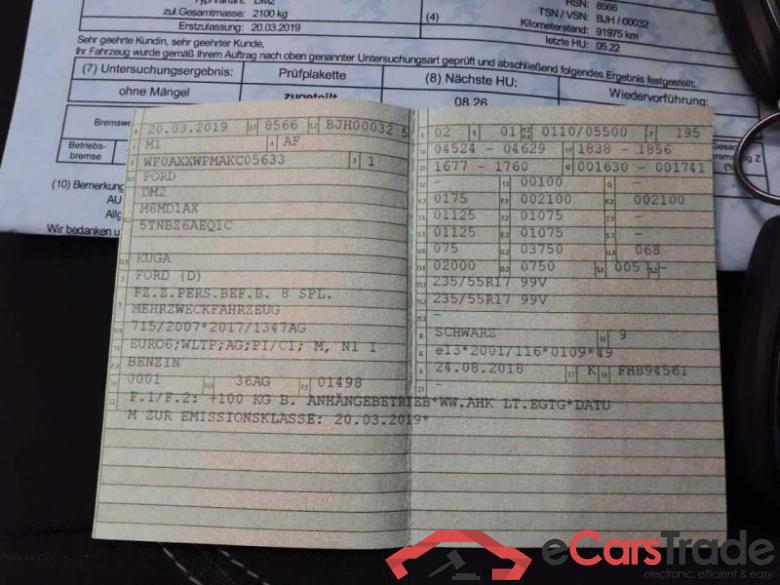 Typ/Variant: DM2
zul.Gesamtmasse: 2100 kg
Erstzulassung: 20.03.2019
(4)
HSN: 8566
TSN / VSN: BJH / 00032
Kilometerstand: 91975 km
letzte HU: 05.22
Sehr geehrte Kundin, sehr geehrter Kunde,
Ihr Fahrzeug wurde gemäß Ihrem Auftrag nach oben genannter Untersuchungsart geprüft und abschließend folgendes Ergebnis festgestellt:
(7) Untersuchungsergebnis: Prüfplakette (8) Nächste HU: Wiedervorführung:
ohne Mängel zugeteilt 08.26
Betriebs-
bremse
(10)
AU
Wir bedanken
20.03.2019 8566 BJH00032 5
M1 AF
WF0AXXWPMAKC05633 1
FORD
DM2
M6MD1AX
5TNBZ6AEQ1C
KUGA
FORD (D)
FZ.Z.PERS.BEF.B. 8 SPL.
MEHRZWECKFAHRZEUG
715/2007*2017/1347AG
EURO6;WLTP;AG;PI/CI; M, N1 I
BENZIN
0001 36AG 01498
F.1/F.2: +100 KG B. ANHÄNGEBETRIEB*WW.AHK LT.EGTG*DATU
M ZUR EMISSIONSKLASSE: 20.03.2019*
02 01 0110/05500 195
04524 - 04629 1838 - 1856
1677 - 1760 001630 - 001741
- 00100 -
0175 002100 002100
01125 01075 -
01125 01075 -
075 03750 068
02000 0750 005 -
235/55R17 99V
235/55R17 99V
-
SCHWARZ 9
e13*2001/116*0109*49
24.08.2018 K FHB94561
-
eCarsTrade
electronic, efficient & easy